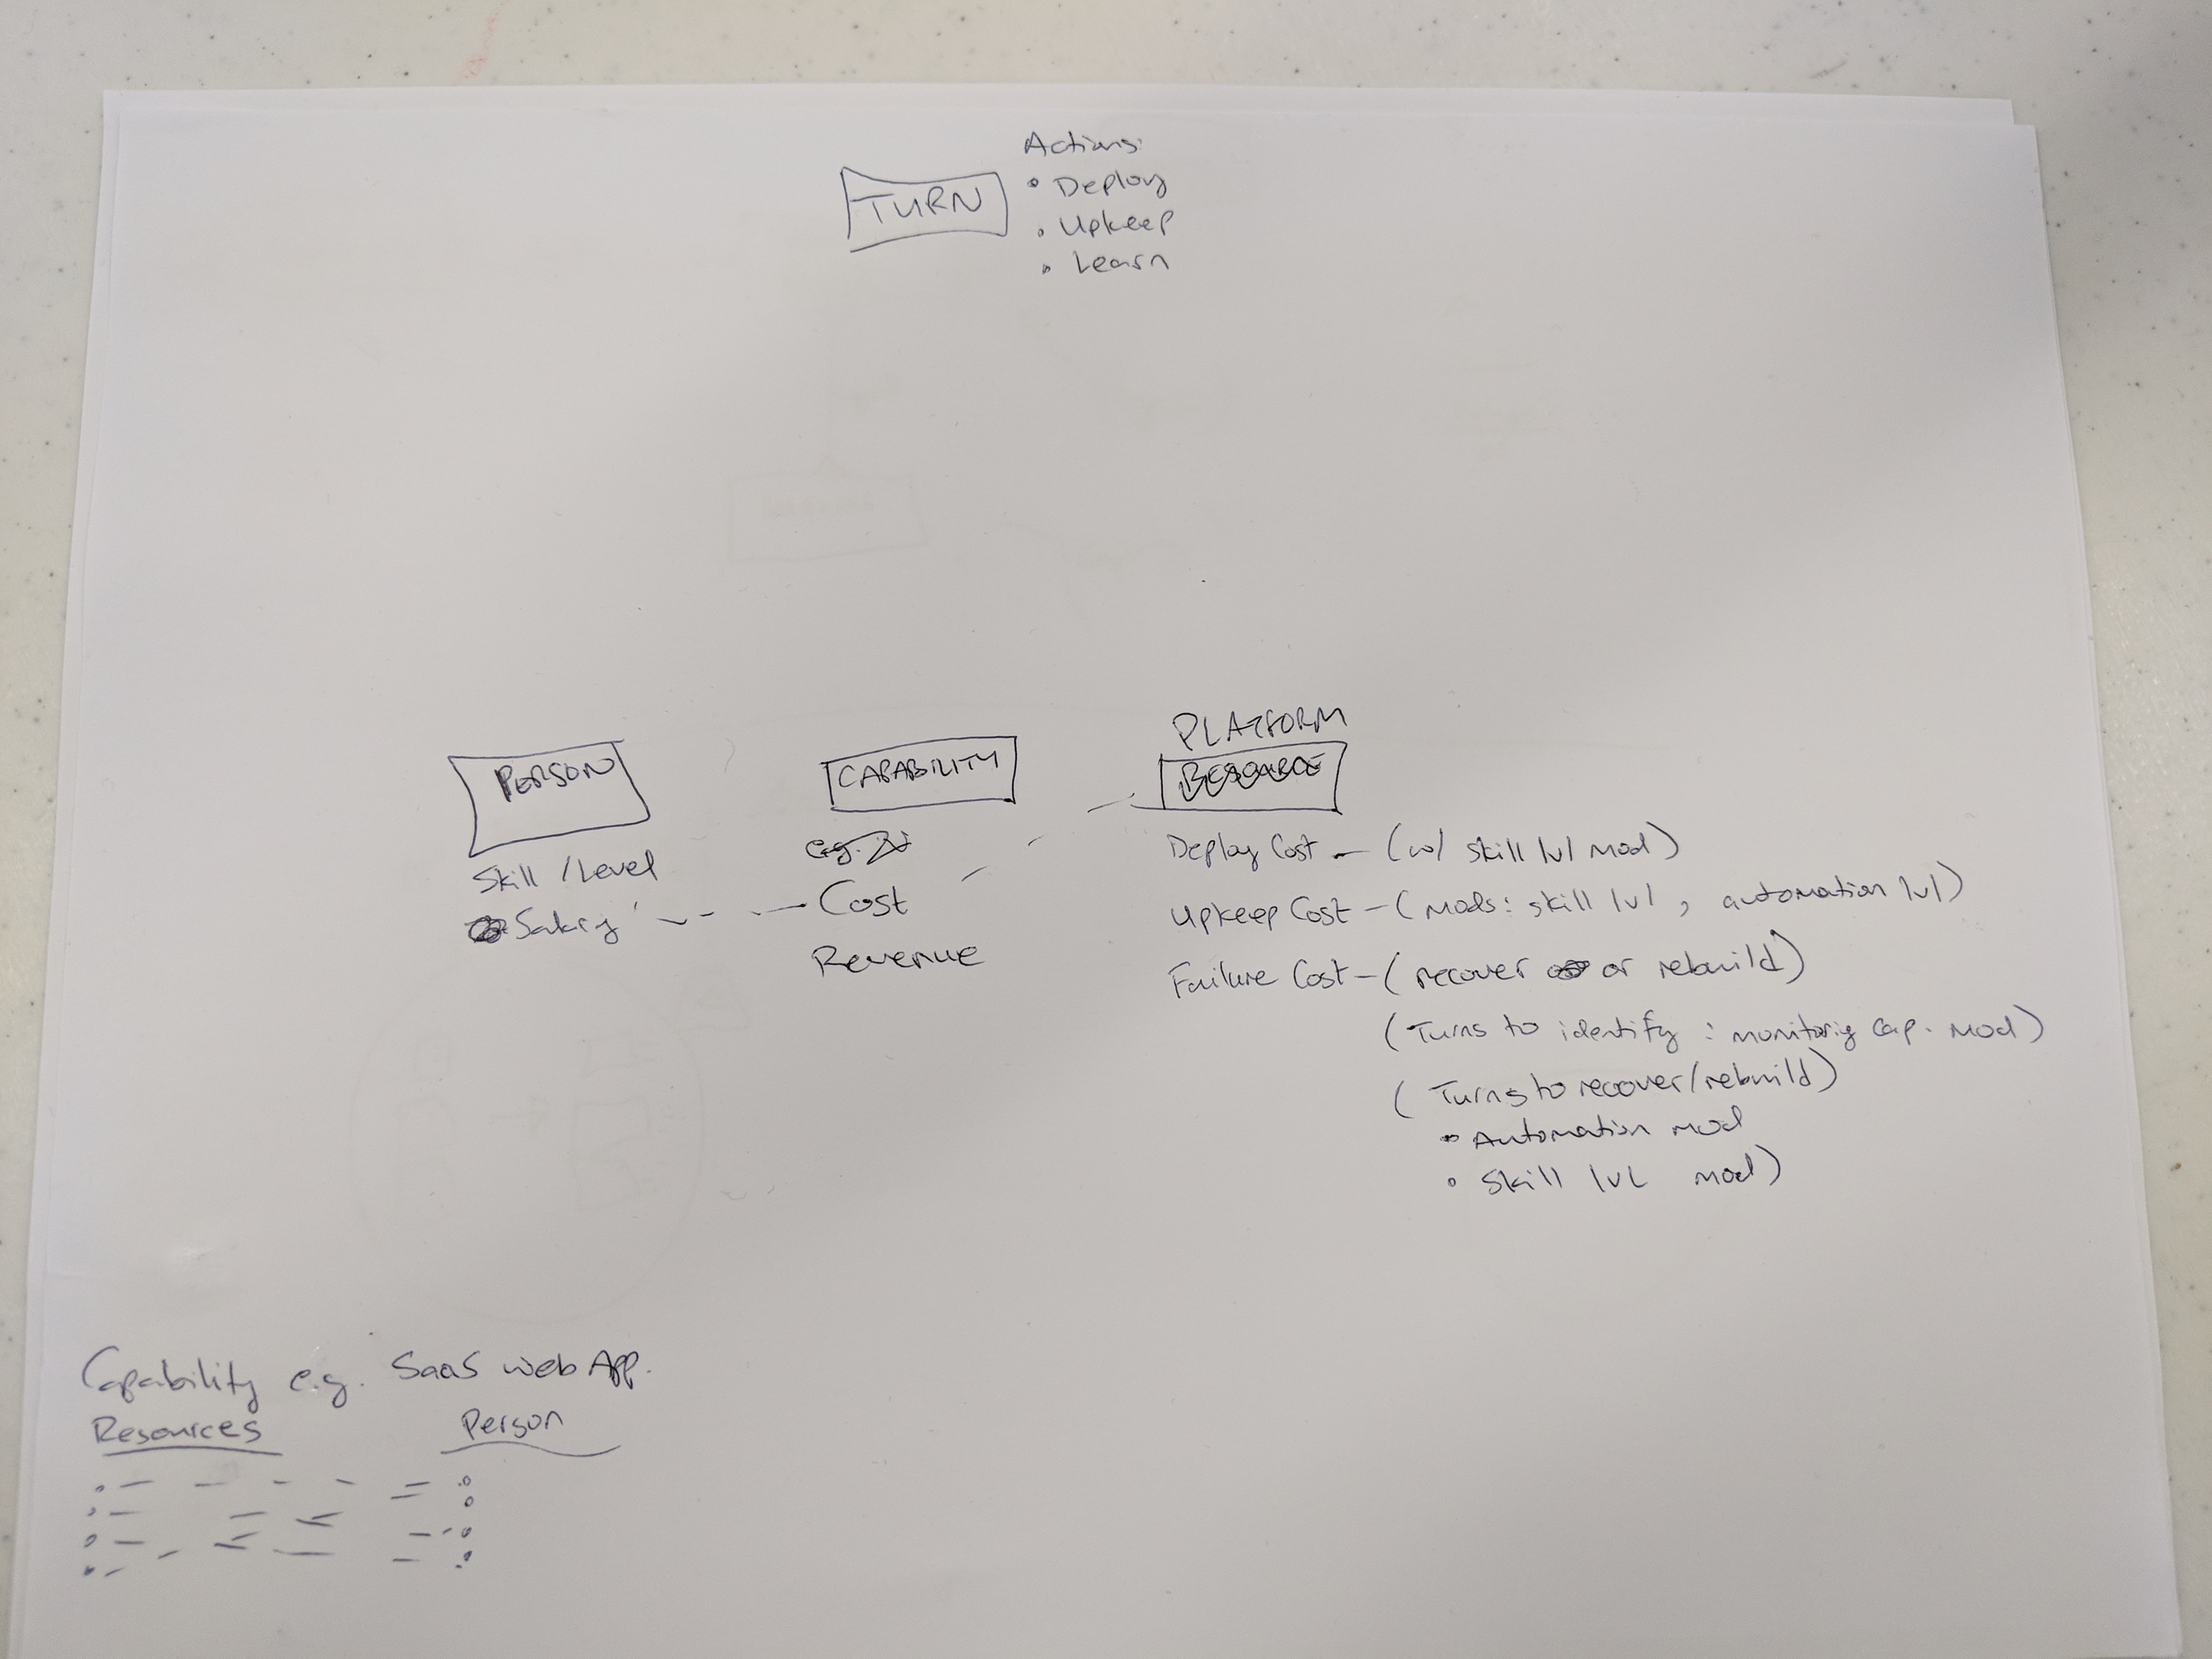 Actions:
TURN
• Deploy
• Upkeep
• Learn
PLATFORM
PERSON
CAPABILITY
RESOURCE
Skill / Level
Salary
e.g.
Cost
Revenue
Deploy Cost - (w/ skill lvl mod)
Upkeep Cost - (mods: skill lvl, automation lvl)
Failure Cost - (recover or rebuild)
(Turns to identify : monitoring cap. mod)
(Turns to recover/rebuild)
• Automation mod
• Skill lvl mod)
Capability e.g. SaaS web App.
Resources
Person